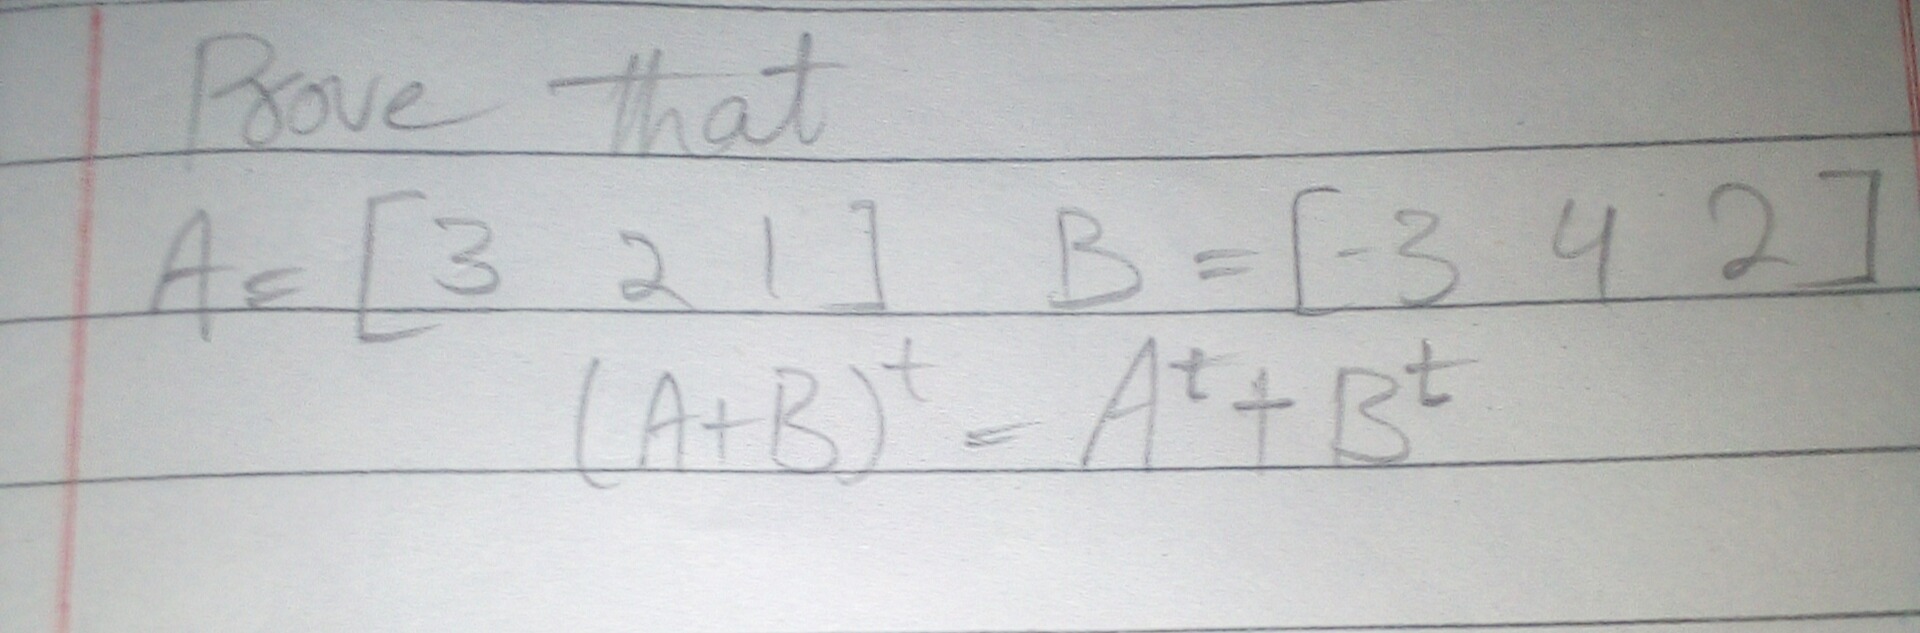 Prove that
A = [3 2 1] B = [-3 4 2]
(A+B)^t = A^t + B^t